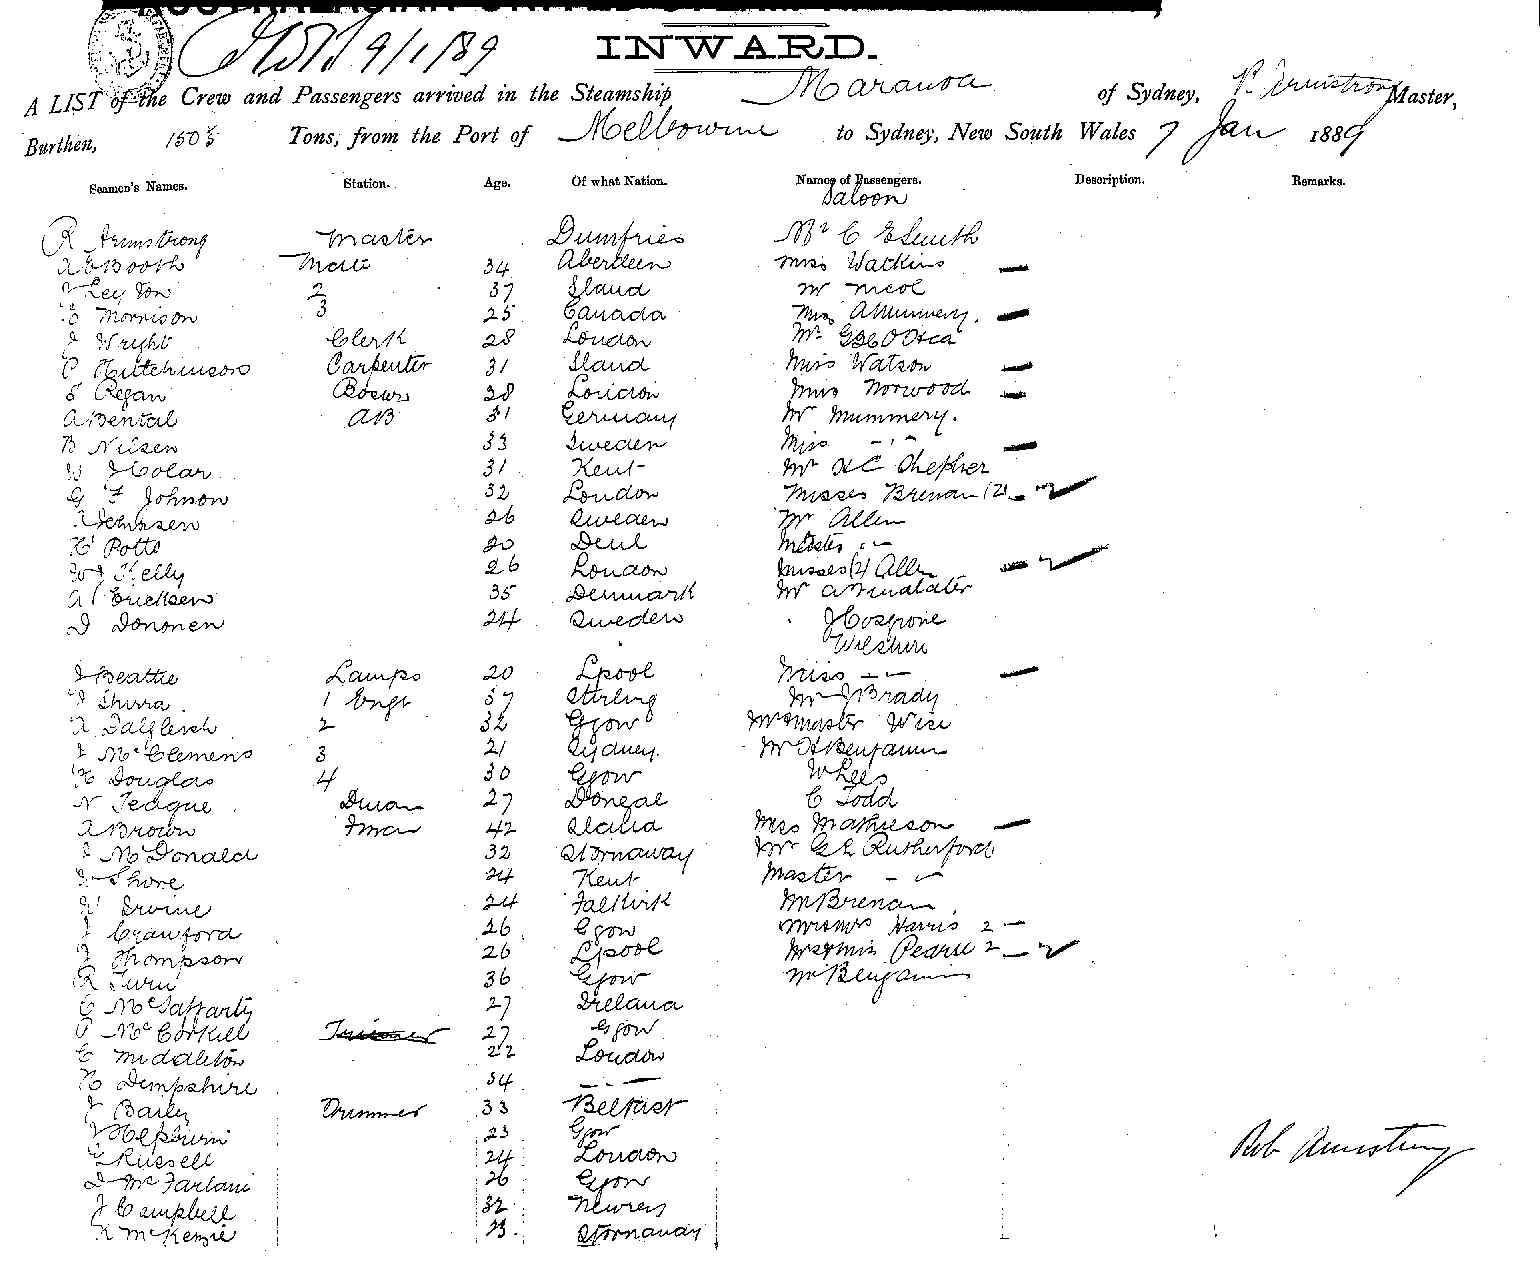 INWARD.
9/1/89
A LIST of the Crew and Passengers arrived in the Steamship Maranoa of Sydney, R. Armstrong Master,
Burthen, 1505 Tons, from the Port of Melbourne to Sydney, New South Wales 7 Jan 1889
Seamen's Names. Station. Age. Of what Nation. Names of Passengers. Description. Remarks.
Saloon
R Armstrong Master Dumfries Mr C E Smith
A Booth Mate 34 Aberdeen Miss Watkins —
Leyton 2 37 Mr Nicol
Morrison 3 25 Canada Miss A Mummery. —
J Wright Clerk 28 London Mr
P Hutchinson Carpenter 31 Miss Watson —
Regan Bosun 38 London Miss Norwood —
A Bental AB 31 Germany Mr Mummery.
B Nilsen 33 Sweden Miss -"- —
W 31 Kent Mr H C
G F Johnson 32 London Misses Brenan (2) —
Johnsen 26 Sweden Mr Allen
Potts 20 Deal Master "
W J Kelly 26 London Misses (2) Allen —
A Ericksen 35 Denmark Mr A Findlater
24 Sweden J Cosgrove
Wilshire
J Beattie Lamps 20 Lpool Miss -"- —
J Shirra 1 Engr 37 Stirling Mr J Brady
A Dalgleish 2 32 Ggow Mrs Master Wise
J McClemens 3 21 Sydney. Mr H Benjamin
H Douglas 4 30 Ggow W Lees
N Teague 27 Donegal C Todd
A Brown Fman 42 Miss Mathieson —
J McDonald 32 Stornaway Mr G E Rutherford
Shore 24 Kent Master -"-
W Irvine 24 Falkirk Mr Brenan
J Crawford 26 Ggow Mr & Mrs Harris 2 —
J Thompson 26 Lpool Mrs & Miss Pearse 2 —
R 36 Ggow Mr Benjamin
C McCafferty 27 Ireland
P McCorkill Trimmer 27 Ggow
C Middleton 22 London
H Dempshire 34 — " —
J Baily Trimmer 33 Belfast
J Hepburn 23 Ggow
G Russell 24 London
D McFarlane 26 Ggow
J Campbell 32 Newrey
K McKenzie 23. Stornaway
Rob Armstrong